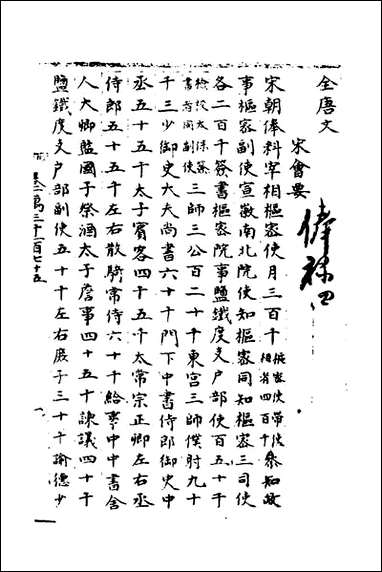 全唐文
宋會要
俸祿四
宋朝俸料宰相樞密使月三百千樞密使帶使相者四百千參知政
事樞密副使宣徽南北院使知樞密同知樞密三司使
各二百千簽書樞密院事鹽鐵度支戶部使百五十千
檢校太保簽書者同副使三師三公百二十千東宮三師僕射九十
千三少御史大夫尚書六十千門下中書侍郎御史中
丞五十五千太子賓客四十五千太常宗正卿左右丞
侍郎五十五千左右散騎常侍六十千給事中中書舍
人大卿監國子祭酒太子詹事四十五千諫議四十千
鹽鐵度支戶部副使五十千左右庶子三十千諭德少
萬三千一百七十五
一